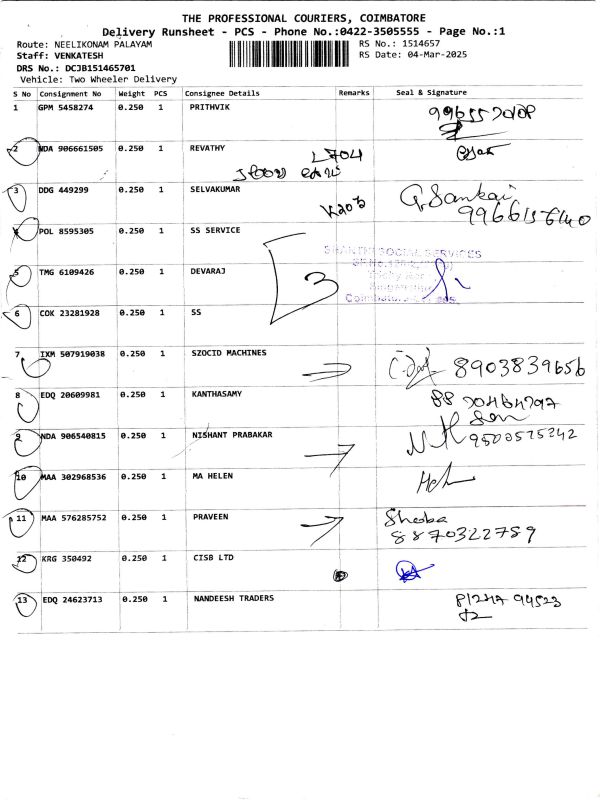 THE PROFESSIONAL COURIERS, COIMBATORE
Delivery Runsheet - PCS - Phone No.:0422-3505555 - Page No.:1
Route: NEELIKONAM PALAYAM
RS No.: 1514657
Staff: VENKATESH
RS Date: 04-Mar-2025
DRS No.: DCJB151465701
Vehicle: Two Wheeler Delivery
S No Consignment No Weight PCS Consignee Details Remarks Seal & Signature
1 GPM 5458274 0.250 1 PRITHVIK
2 NDA 906661505 0.250 1 REVATHY L704
3 DDG 449299 0.250 1 SELVAKUMAR K203 G. Sankai
9966156140
4 POL 8595305 0.250 1 SS SERVICE
SHANTHI SOCIAL SERVICES
5 TMG 6109426 0.250 1 DEVARAJ 3
6 COK 23281928 0.250 1 SS
7 IXM 507919038 0.250 1 SZOCID MACHINES 8903839656
8 EDQ 20609981 0.250 1 KANTHASAMY
9 NDA 906540815 0.250 1 NISHANT PRABAKAR 9500575342
10 MAA 302968536 0.250 1 MA HELEN
11 MAA 576285752 0.250 1 PRAVEEN Shoba
8870322759
12 KRG 350492 0.250 1 CISB LTD
13 EDQ 24623713 0.250 1 NANDEESH TRADERS 94523